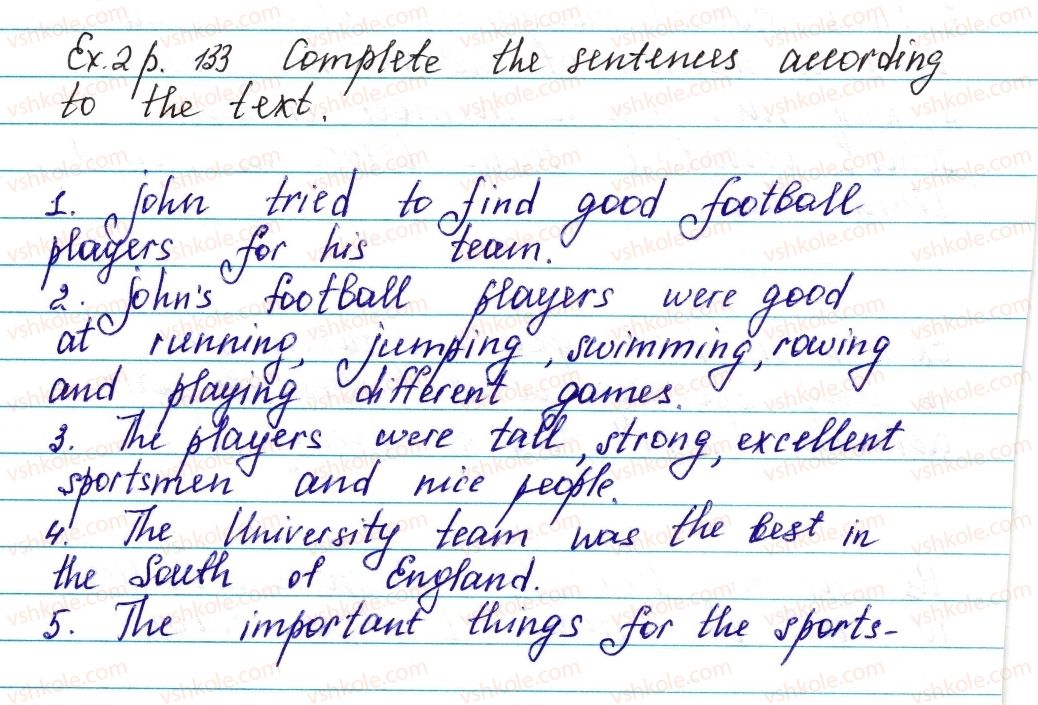 Ex. 2 p. 133 Complete the sentences according
to the text.
1. John tried to find good football
players for his team.
2. John's football players were good
at running, jumping, swimming, rowing
and playing different games.
3. The players were tall, strong, excellent
sportsmen and nice people.
4. The University team was the best in
the South of England.
5. The important things for the sports-
vshkole.com